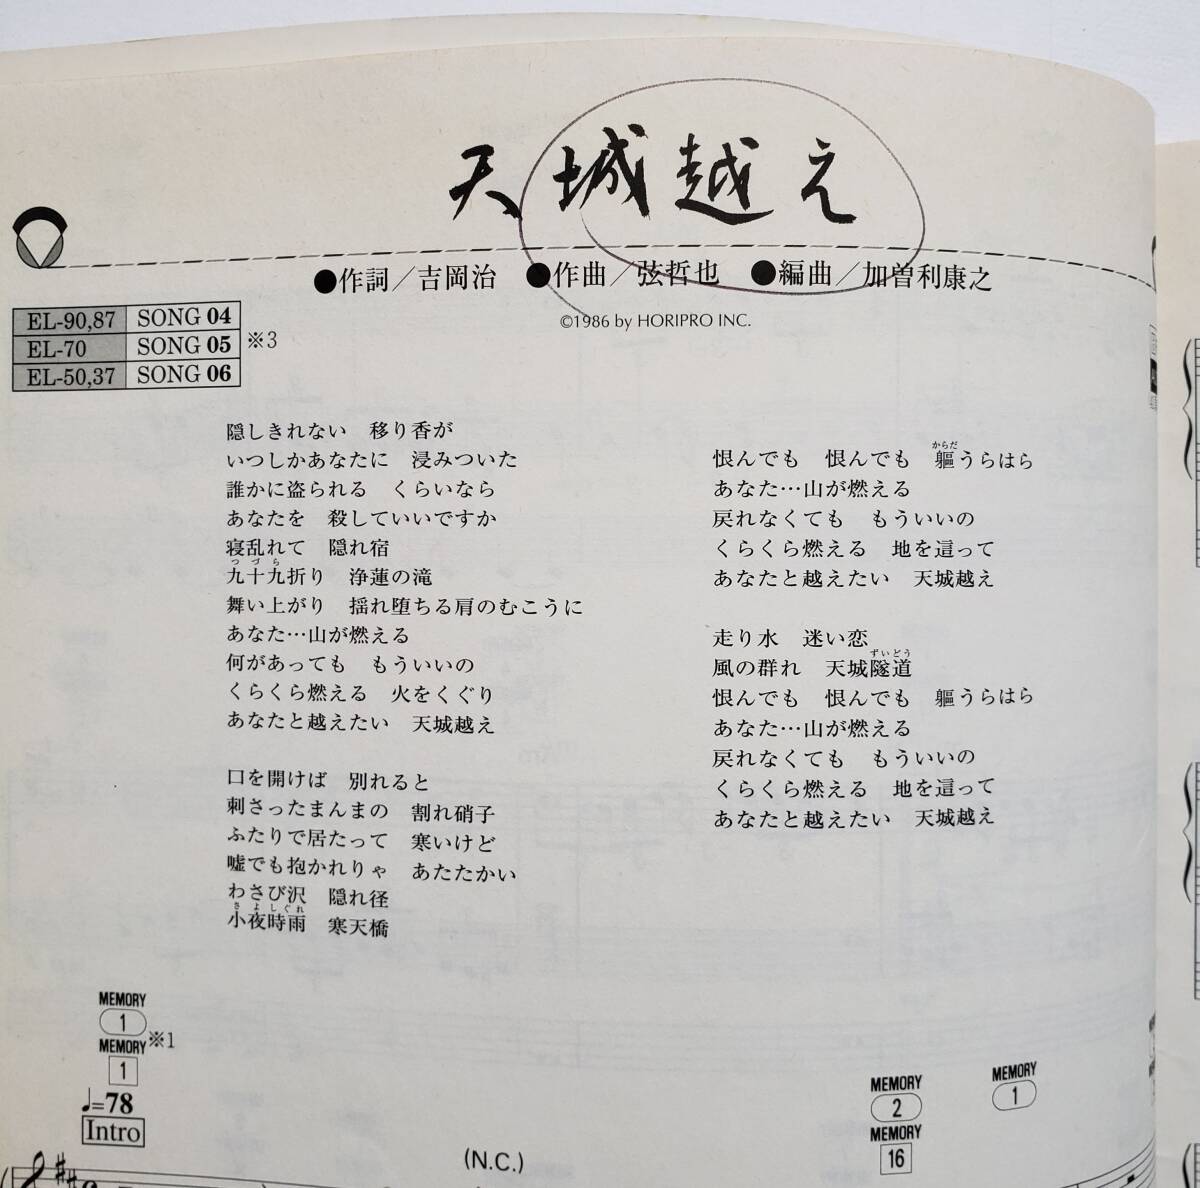 天城越え
●作詞／吉岡治　●作曲／弦哲也　●編曲／加曽利康之
©1986 by HORIPRO INC.
EL-90,87 SONG 04
EL-70 SONG 05 ※3
EL-50,37 SONG 06
隠しきれない　移り香が
いつしかあなたに　浸みついた
誰かに盗られる　くらいなら
あなたを　殺していいですか
寝乱れて　隠れ宿
つづら
九十九折り　浄蓮の滝
舞い上がり　揺れ堕ちる肩のむこうに
あなた…山が燃える
何があっても　もういいの
くらくら燃える　火をくぐり
あなたと越えたい　天城越え
口を開けば　別れると
刺さったまんまの　割れ硝子
ふたりで居たって　寒いけど
嘘でも抱かれりゃ　あたたかい
わさび沢　隠れ径
さよしぐれ
小夜時雨　寒天橋
からだ
恨んでも　恨んでも　軀うらはら
あなた…山が燃える
戻れなくても　もういいの
くらくら燃える　地を這って
あなたと越えたい　天城越え
走り水　迷い恋
ずいどう
風の群れ　天城隧道
恨んでも　恨んでも　軀うらはら
あなた…山が燃える
戻れなくても　もういいの
くらくら燃える　地を這って
あなたと越えたい　天城越え
MEMORY
1
MEMORY ※1
1
♩=78
Intro
(N.C.)
MEMORY
2
MEMORY
16
MEMORY
1